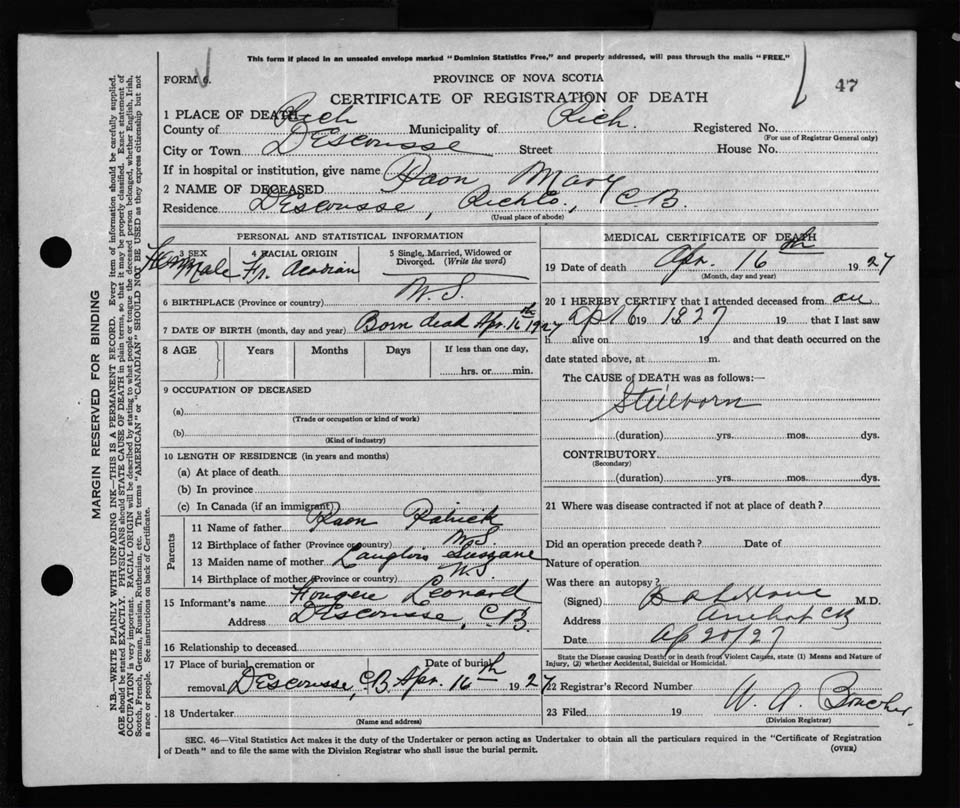 This form if placed in an unsealed envelope marked "Dominion Statistics Free," and properly addressed, will pass through the mails "FREE."
FORM 6.
PROVINCE OF NOVA SCOTIA
47
CERTIFICATE OF REGISTRATION OF DEATH
1 PLACE OF DEATH
County of Rich Municipality of Rich. Registered No.
(For use of Registrar General only)
City or Town DEscousse Street House No.
If in hospital or institution, give name
2 NAME OF DECEASED Mary
Residence DEscousse, Richlo., C.B.
(Usual place of abode)
PERSONAL AND STATISTICAL INFORMATION
3 SEX Male
4 RACIAL ORIGIN Fr. Acadian
5 Single, Married, Widowed or Divorced. (Write the word)
6 BIRTHPLACE (Province or country) N.S.
7 DATE OF BIRTH (month, day and year) Born dead Apr. 16th 1927
8 AGE Years Months Days If less than one day,
hrs. or min.
9 OCCUPATION OF DECEASED
(a)
(Trade or occupation or kind of work)
(b)
(Kind of industry)
10 LENGTH OF RESIDENCE (in years and months)
(a) At place of death
(b) In province
(c) In Canada (if an immigrant)
Parents
11 Name of father Patrick
12 Birthplace of father (Province or country) N.S.
13 Maiden name of mother Langlois Suzzane
14 Birthplace of mother (Province or country) N.S.
15 Informant's name Fougere Leonard
Address DEscousse, C.B.
16 Relationship to deceased
17 Place of burial, cremation or removal DEscousse, C.B. Date of burial Apr. 16th 1927
18 Undertaker
(Name and address)
MEDICAL CERTIFICATE OF DEATH
19 Date of death Apr. 16th 1927
(Month, day and year)
20 I HEREBY CERTIFY that I attended deceased from on
Ap 16 19 1927 19 that I last saw
h alive on 19 and that death occurred on the
date stated above, at m.
The CAUSE of DEATH was as follows:—
Stillborn
(duration) yrs. mos. dys.
CONTRIBUTORY
(Secondary)
(duration) yrs. mos. dys.
21 Where was disease contracted if not at place of death?
Did an operation precede death? Date of
Nature of operation
Was there an autopsy?
(Signed) M.D.
Address Arichat CB
Date Ap 20/27
State the Disease causing Death, or in death from Violent Causes, state (1) Means and Nature of
Injury, (2) whether Accidental, Suicidal or Homicidal.
22 Registrar's Record Number
23 Filed 19 W. A.
(Division Registrar)
SEC. 46—Vital Statistics Act makes it the duty of the Undertaker or person acting as Undertaker to obtain all the particulars required in the "Certificate of Registration
of Death" and to file the same with the Division Registrar who shall issue the burial permit.
(OVER)
MARGIN RESERVED FOR BINDING
N.B.—WRITE PLAINLY WITH UNFADING INK—THIS IS A PERMANENT RECORD. Every item of information should be carefully supplied.
AGE should be stated EXACTLY. PHYSICIANS should STATE CAUSE OF DEATH in plain terms, so that it may be properly classified. Exact statement of
OCCUPATION is very important. RACIAL ORIGIN will be described by stating to what people or tongue the deceased person belonged, whether English, Irish,
Scotch, French, German, Russian, Ruthenian, etc. The terms "AMERICAN" or "CANADIAN" SHOULD NOT BE USED as they express citizenship but not
a race or people. See instructions on back of Certificate.